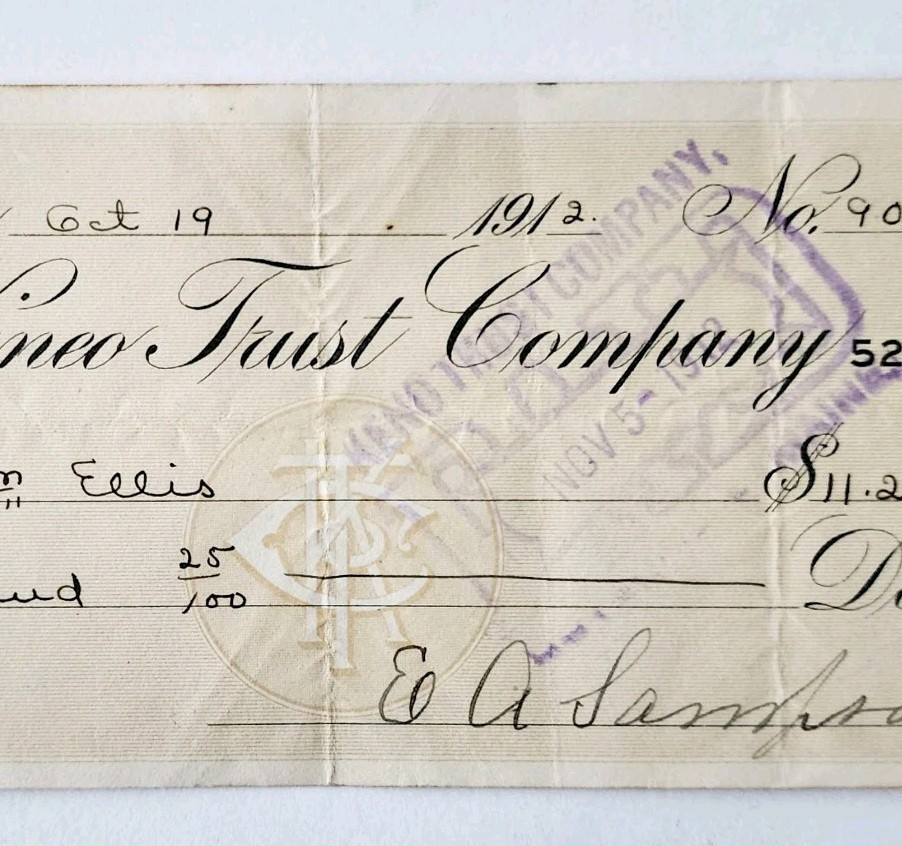 Oct 19 1912. No. 90
neo Trust Company 52
m Ellis $11.2
and 25/100
E A Sampso
KINEO TRUST COMPANY,
NOV 5 - 1912